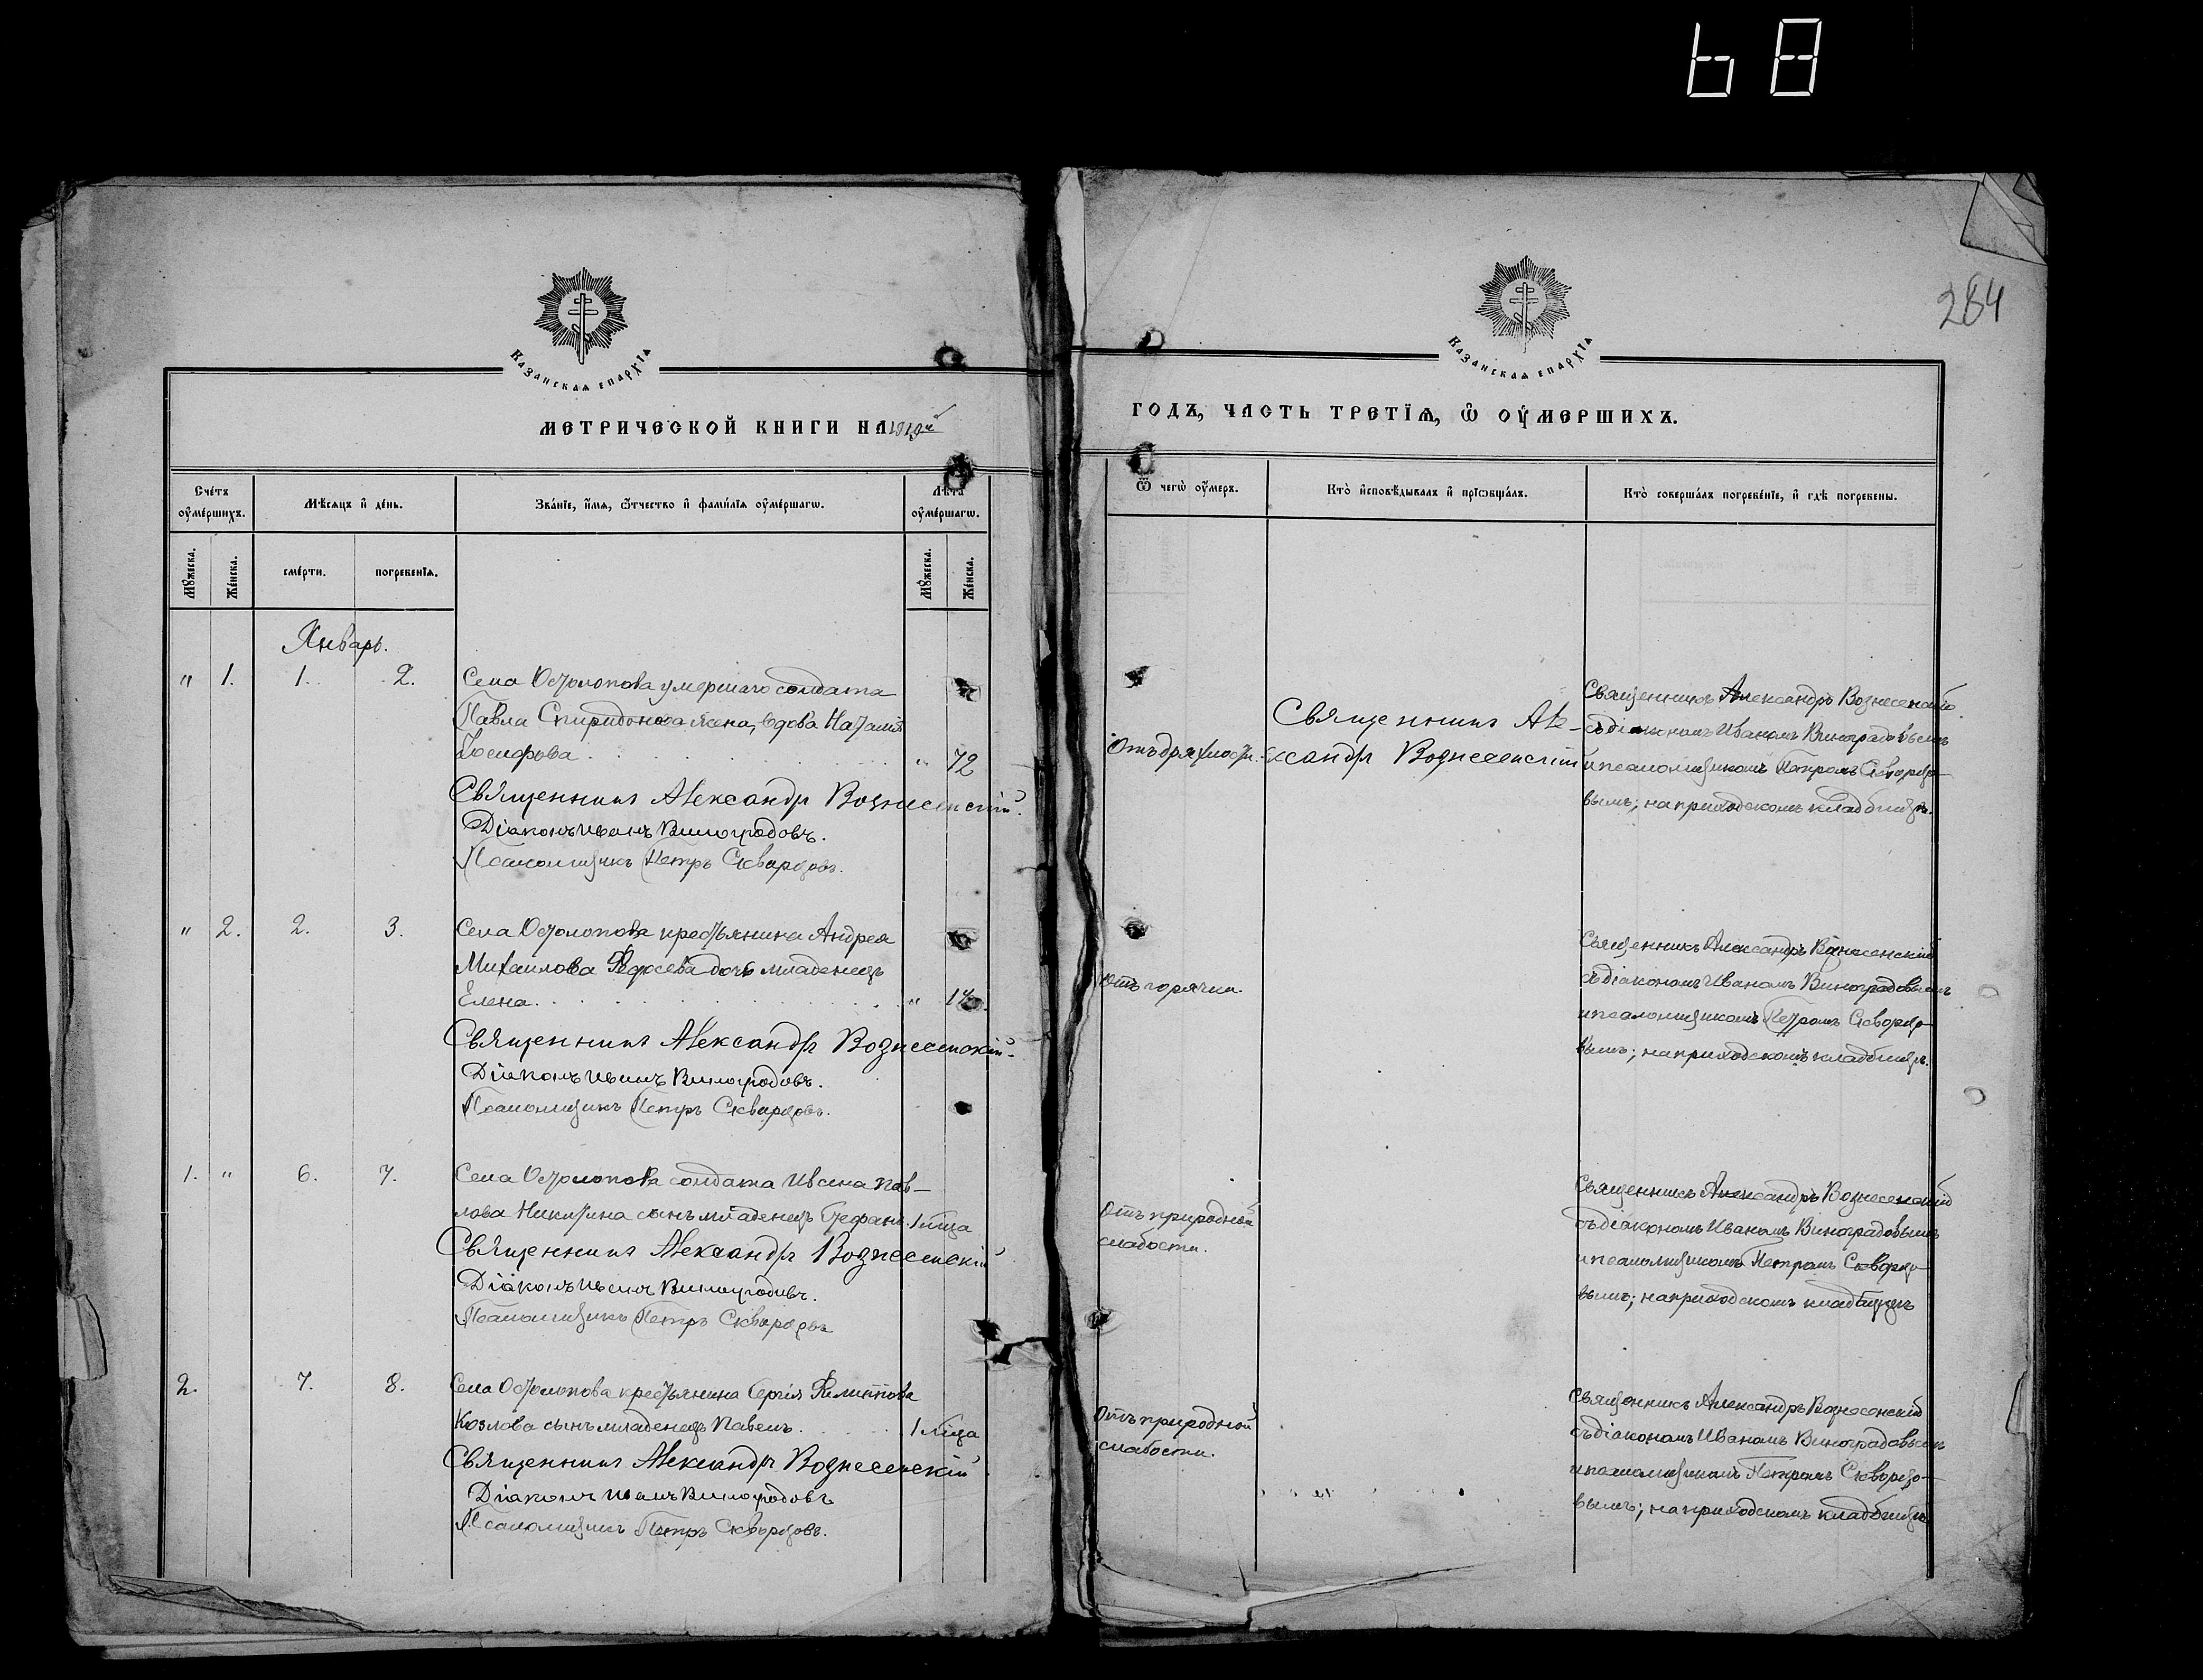 68
284
Казанская епархїѧ
Казанская епархїѧ
МЕТРИЧЕСКОЙ КНИГИ НА
ГОДЪ, ЧАСТЬ ТРЕТЇѦ, Ѿ ОУМЕРШИХЪ.
Сче́тъ оу҆ме́ршихъ.
Мѣ́сѧцъ и҆ де́нь.
Зва́нїе, и҆́мѧ, ѻ҆́тчество и҆ фамѝлїѧ оу҆ме́ршагѡ.
Лѣ́та оу҆ме́ршагѡ.
Ѿ чегѡ̀ оу҆́меръ.
Кто̀ и҆сповѣ́дывалъ и҆ прїѡбща́лъ.
Кто̀ соверша́лъ погребе́нїе, и҆ гдѣ̀ погребены.
Мꙋ́жеска.
Же́нска.
сме́рти.
погребе́нїѧ.
Мꙋ́жеска.
Же́нска.
Январь.
" 1. 1. 2. Села Остолопова умершаго солдата
Павла Спиридонова жена, вдова Наталия
Іосифова " 72
Священникъ Александръ Вознесенскій.
Діаконъ Иванъ Виноградовъ.
Псаломщикъ Петръ Скворцовъ.
Отъ дряхлости.
Священникъ Але-
ксандръ Вознесенскій
Священникъ Александръ Вознесенскій
съ діакономъ Иваномъ Виноградовымъ
и псаломщикомъ Петромъ Скворцо-
вымъ; на приходскомъ кладбищѣ.
" 2. 2. 3. Села Остолопова крестьянина Андрея
Михаилова дочь младенецъ
Елена "
Священникъ Александръ Вознесенскій.
Діаконъ Иванъ Виноградовъ.
Псаломщикъ Петръ Скворцовъ.
Отъ горячки.
Священникъ Александръ Вознесенскій
съ діакономъ Иваномъ Виноградовымъ
и псаломщикомъ Петромъ Скворцо-
вымъ; на приходскомъ кладбищѣ.
1. " 6. 7. Села Остолопова солдата Ивана Пав-
лова Никитина сынъ младенецъ Стефанъ. 1 м-ца
Священникъ Александръ Вознесенскій
Діаконъ Иванъ Виноградовъ.
Псаломщикъ Петръ Скворцовъ
Отъ природной
слабости.
Священникъ Александръ Вознесенскій
съ діакономъ Иваномъ Виноградовымъ
и псаломщикомъ Петромъ Скворцо-
вымъ; на приходскомъ кладбищѣ
2. 7. 8. Села Остолопова крестьянина Сергія Филиппова
Козлова сынъ младенецъ Павелъ. 1 м-ца
Священникъ Александръ Вознесенскій
Діаконъ Иванъ Виноградовъ
Псаломщикъ Петръ Скворцовъ.
Отъ природной
слабости.
Священникъ Александръ Вознесенскій
съ діакономъ Иваномъ Виноградовымъ
и псаломщикомъ Петромъ Скворцо-
вымъ; на приходскомъ кладбищѣ